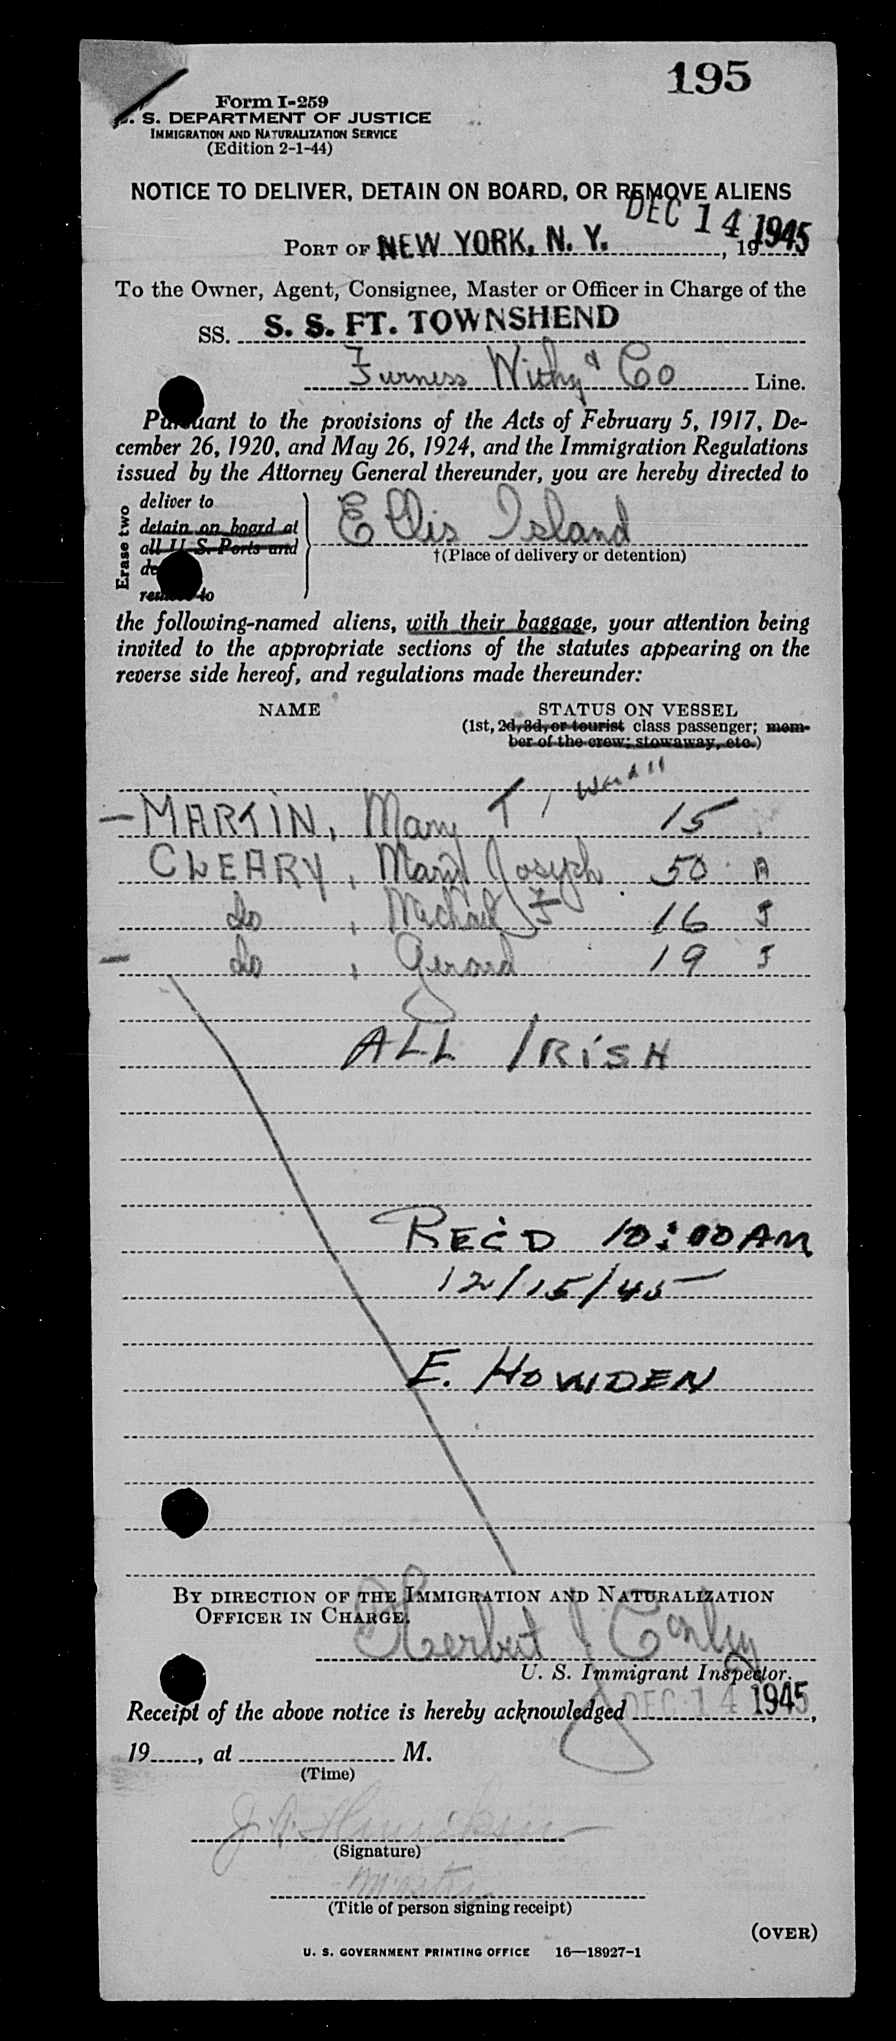 195
Form I-259
U. S. DEPARTMENT OF JUSTICE
IMMIGRATION AND NATURALIZATION SERVICE
(Edition 2-1-44)
NOTICE TO DELIVER, DETAIN ON BOARD, OR REMOVE ALIENS
DEC 14 1945
PORT OF NEW YORK, N. Y. , 19
To the Owner, Agent, Consignee, Master or Officer in Charge of the
SS. S. S. FT. TOWNSHEND
Furness Withy & Co Line.
Pursuant to the provisions of the Acts of February 5, 1917, De-
cember 26, 1920, and May 26, 1924, and the Immigration Regulations
issued by the Attorney General thereunder, you are hereby directed to
Erase two
deliver to
detain on board at
all U. S. Ports and
remove to
Ellis Island
†(Place of delivery or detention)
the following-named aliens, with their baggage, your attention being
invited to the appropriate sections of the statutes appearing on the
reverse side hereof, and regulations made thereunder:
NAME STATUS ON VESSEL
(1st, 2d, 3d, or tourist class passenger; mem-
ber of the crew; stowaway, etc.)
Ward 11
- MARTIN, Mary T, 15
CLEARY, Mary Joseph 50 A
do , Michael F 16 J
- do , Gerard 19 J
ALL IRISH
REC'D 10:00 AM
12/15/45
E. HOWDEN
BY DIRECTION OF THE IMMIGRATION AND NATURALIZATION
OFFICER IN CHARGE.
Herbert J Conley
U. S. Immigrant Inspector.
Receipt of the above notice is hereby acknowledged DEC 14 1945,
19 , at M.
(Time)
(Signature)
Master
(Title of person signing receipt)
(OVER)
U. S. GOVERNMENT PRINTING OFFICE 16—18927-1